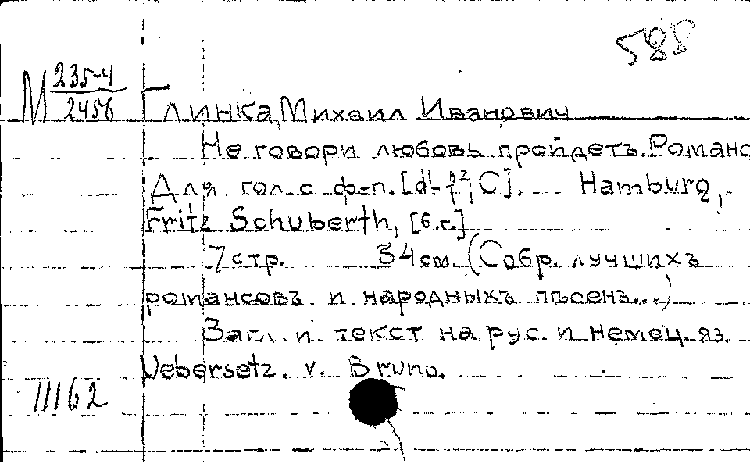 588
М 235-4/2456
Глинка, Михаил Иванович
Не говори любовь пройдетъ. Романс
Для гол. с ф-п. [d¹-f², C]. Hamburg,
Fritz Schuberth, [б.г.]
7 стр. 34 см. (Собр. лучшихъ
романсовъ и народныхъ пѣсенъ...)
Загл. и текст на рус. и немец. яз.
Uebersetz. v. Bruno.
11162